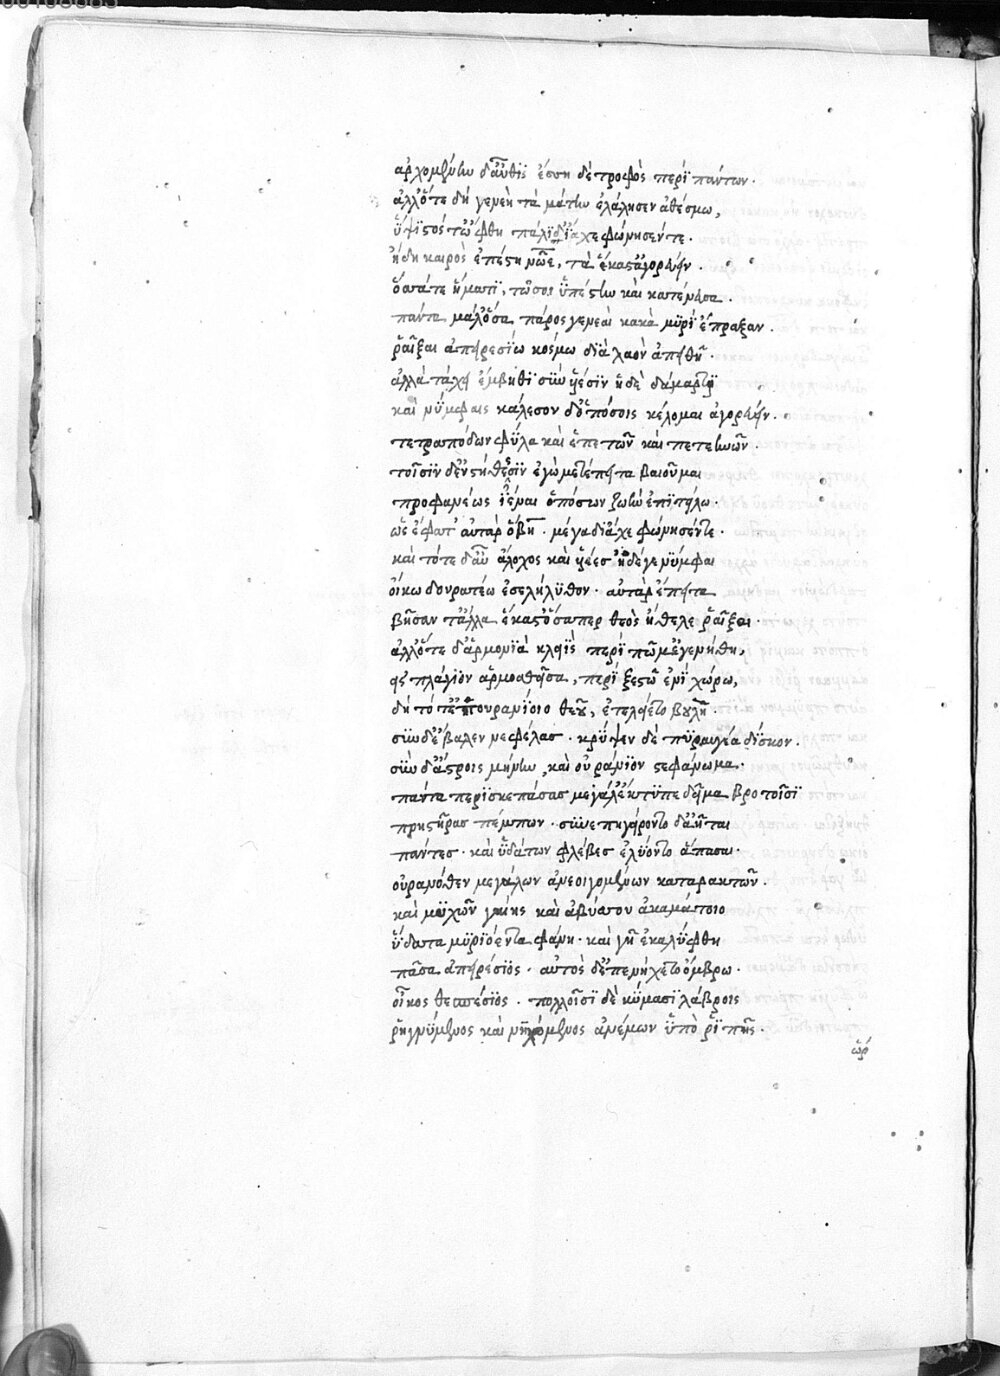 ἀρχομένην δ' αὖθις ἔσση δὲ τροφὸς περὶ πάντων.
ἀλλ' ὅτε δὴ γενεὴ τὰ μάτην ἐλάλησεν ἀθέσμω,
ὕψιστός τ' ὤφθη πάλι διάχε φώνησέν τε.
ἤδη καιρὸς ἐπέστη νῶε, τὰ ἕκαστ' ἀγορεύειν.
ὅσσα τε ἤματι, τῶ σοι ὑπέστην καὶ κατένευσα.
πάντα μάλ' ὅσσα πάρος γενεαὶ κακὰ μυρί' ἔπραξαν.
ῥαῖξαι ἀπειρεσίω κόσμω διὰ λαὸν ἀπειθῆ.
ἀλλὰ τάχει ἔμβηθι σὺν υἱέσιν ἠδὲ δάμαρτι
καὶ νύμφαις κάλεσον δ' ὁπόσοις κέλομαι ἀγορεύειν.
τετραπόδων φῦλα καὶ ἑρπετῶν καὶ πετεινῶν.
τοῖσιν δ' ἐν στήθεσιν ἐγὼ μετέπειτα βαλοῦμαι
προφανέως ἰέναι ὁπόσων ζωὴν ἐπιτέλλω.
ὣς ἔφατ' αὐτὰρ ὃ βῆ. μέγα διάχε φώνησέν τε.
καὶ τότε δ' αὖ ἄλοχος καὶ υἱέες ἠδέ γε νύμφαι
οἴκω δουρατέω ἐσελήλυθον. αὐτὰρ ἔπειτα
βῆσαν τἄλλα ἕκασθ' ὅσαπερ θεὸς ἤθελε ῥαῖξαι.
ἀλλ' ὅτε δ' ἁρμονία κληὶς περὶ πῶμ' ἐγενήθη,
ἐς πλάγιον ἁρμοσθεῖσα, περὶ ξεστῶ ἐνὶ χώρω,
δὴ τότ' ἐπουρανίοιο θεοῦ, ἐτελείετο βουλή.
σὺν δ' ἔβαλεν νεφέλας. κρύψεν δὲ πυραυγέα δίσκον.
σὺν δ' ἄστροις μήνην, καὶ οὐράνιον στεφάνωμα.
πάντα περισκεπάσας μεγάλ' ἔκτυπε δεῖμα βροτοῖσι
πρηστῆρας πέμπων. συνεπηγείροντο δ' ἀῆται
πάντες. καὶ ὑδάτων φλέβες ἐλύοντο ἅπασαι.
οὐρανόθεν μεγάλων ἀνεοιγομένων καταρακτῶν.
καὶ μυχῶν γαίης καὶ ἀβύσσου ἀκαμάτοιο
ὕδατα μυριόεντα φάνη. καὶ γῆ ἐκαλύφθη
πᾶσα ἀπειρέσιος. αὐτὸς δ' ἐπενήχετο ὄμβρω.
οἶκος θεσπέσιος. πολλοῖσι δὲ κύμασι λάβροις
ῥηγνύμενος καὶ νηχόμενος ἀνέμων ὑπὸ ῥιπῆς.
ὦρ